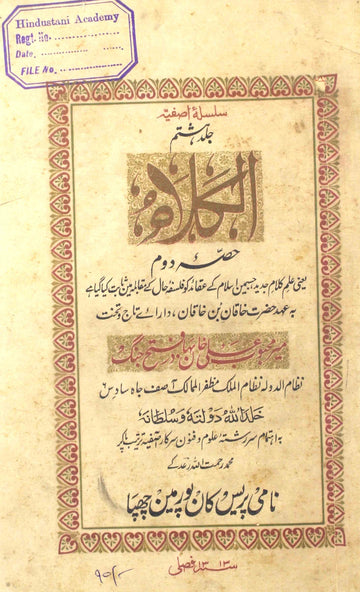 Hindustani Academy
Regt. No.
Date.
FILE No.
سلسلۂ آصفیہ
جلد ہشتم
الکلام
حصۂ دوم
یعنی علم کلام جدید جسمین اسلام کے عقائد کو فلسفۂ حال کے مقابلہ مین ثابت کیا گیا ہے
بہ عہد حضرت خاقان بن خاقان، دارائے تاج و تخت
میر محبوب علی خان بہادر فتح جنگ
نظام الدولہ نظام الملک مظفر الممالک آصف جاہ سادس
خلد اللہ دولتہ و سلطانہ
بہ اہتمام سررشتۂ علوم و فنون سرکار آصفیہ ترتیب پاکر
محمد رحمت اللہ رعد کے
نامی پریس کان پور مین چھپا
۱۳۱۳ سنہ فصلی